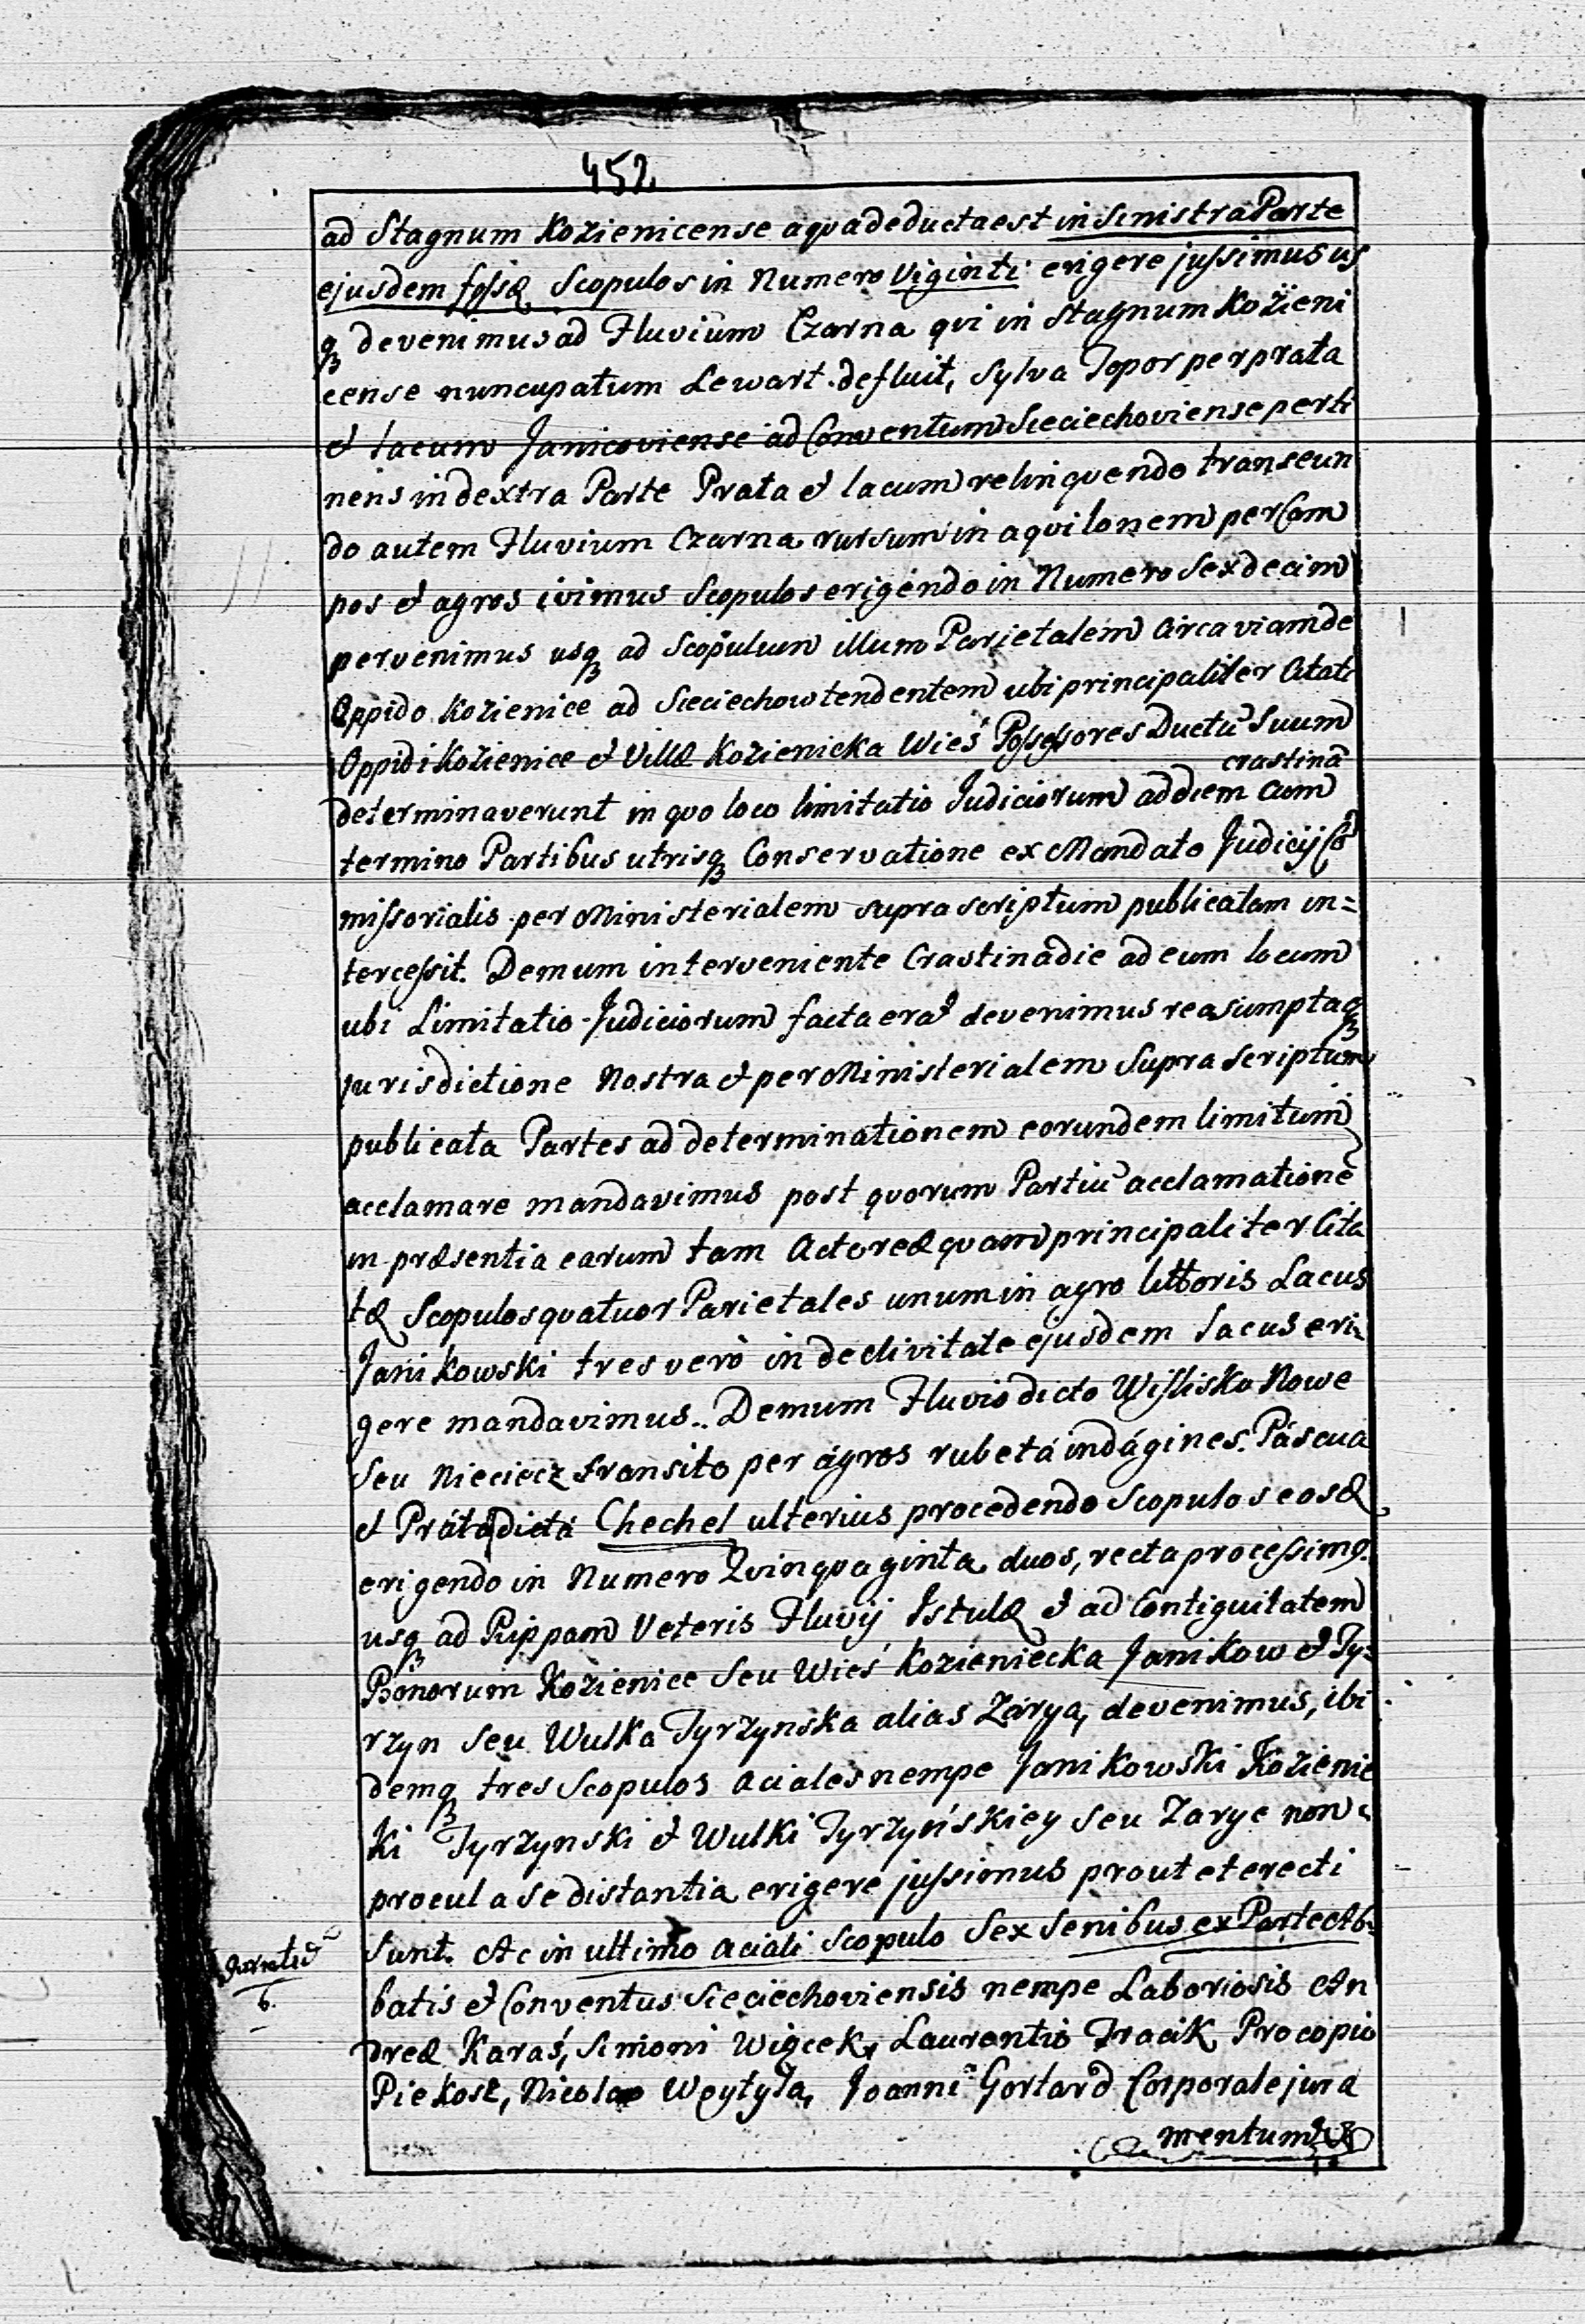 452
ad Stagnum Kozienicense aqva deducta est in Sinistra Parte
ejusdem fossæ Scopulos in Numero Viginti erigere jussimus us
q devenimus ad Fluvium Czarna qvi in Stagnum Kozieni
cense nuncupatum Lewart defluit, Sylva Topor per prata
et lacum Janicoviense ad Conventum Sieciechoviense perti
nens in dextra Parte Prata et lacum relinqvendo transeun
do autem Fluvium Czarna rursum in aqvilonem per Cam
pos et agros ivimus Scopulos erigendo in Numero Sexdecim
pervenimus usq ad Scopulum illum Parietalem circa viam de
Oppido Kozienice ad Sieciechow tendentem ubi principaliter Citati
Oppidi Kozienice et Villæ Kozienicka Wieś Possessores Ductū Suum
crastinā
determinaverunt in qvo loco limitatio Judiciorum ad diem cum
termino Partibus utrisq Conservatione ex Mandato Judicij Cō
missorialis per Ministerialem supra scriptum publicatam in=
tercessit. Demum interveniente Crastina die ad eum locum
ubi Limitatio Judiciorum facta erat devenimus reasumptaq
jurisdictione Nostra et per Ministerialem Supra Scriptum
publicata Partes ad determinationem eorundem limitum
acclamare mandavimus post qvorum Partiū acclamationē
in præsentia earum tam Actoreæ qvam principaliter Cita
tæ Scopulos qvatuor Parietales unum in agro littoris Lacus
Janikowski tres verò in declivitate ejusdem Lacus eri=
gere mandavimus. Demum Fluvio dicto Wisliska Nowe
Seu Nieciecz transito per agros rubeta indagines Pascua
et Prata dicta Chechel ulterius procedendo Scopulos eosæ
erigendo in Numero Qvinqvaginta duos, recta processimq
usq ad Rippam Veteris Fluvij Istulæ et ad Contiguitatem
Bonorum Kozienice Seu Wieś Kozieniecka Janikow et Ty=
rzyn Seu Wulka Tyrzynska alias Zarya, devenimus, ibi
demq tres Scopulos aciales nempe Janikowski Kozienic
ki Tyrzynski et Wulki Tyrzyńskiey Seu Zarye non
procul a se distantia erigere jussimus prout et erecti
Sunt. Ac in ultimo aciali Scopulo Sex Senibus ex Parte Ab=
batis et Conventus Sieciechoviensis nempe Laboriosis An
dreæ Karaś, Simoni Wiącek, Laurentio Fracik Procopio
Piekosz, Nicolao Woytyła, Joanni Gortard Corporale jura
mentum
6.